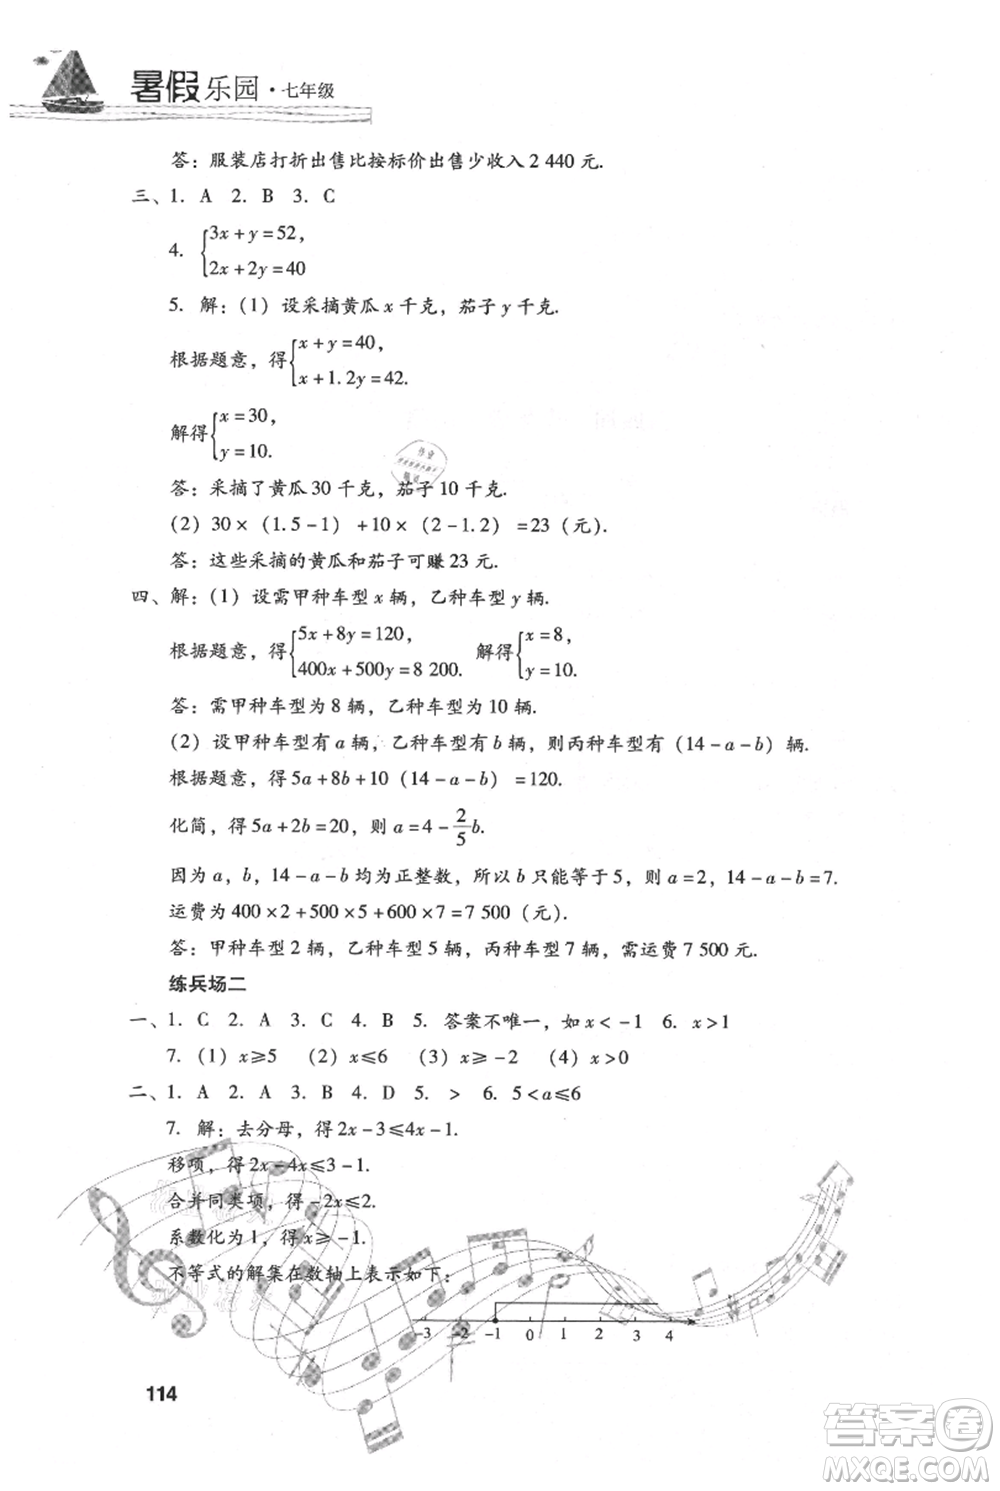 暑假乐园·七年级
答：服装店打折出售比按标价出售少收入2 440 元.
三、1. A 2. B 3. C
4. {3x+y=52,
2x+2y=40
5. 解：(1) 设采摘黄瓜 x 千克，茄子 y 千克.
根据题意，得{x+y=40,
x+1.2y=42.
解得{x=30,
y=10.
答：采摘了黄瓜 30 千克，茄子 10 千克.
(2) 30×(1.5-1)+10×(2-1.2)=23（元）.
答：这些采摘的黄瓜和茄子可赚 23 元.
四、解：(1) 设需甲种车型 x 辆，乙种车型 y 辆.
根据题意，得{5x+8y=120,
400x+500y=8 200.
解得{x=8,
y=10.
答：需甲种车型为 8 辆，乙种车型为 10 辆.
(2) 设甲种车型有 a 辆，乙种车型有 b 辆，则丙种车型有 (14-a-b) 辆.
根据题意，得 5a+8b+10 (14-a-b) =120.
化简，得 5a+2b=20，则 a=4-2/5b.
因为 a，b，14-a-b 均为正整数，所以 b 只能等于 5，则 a=2，14-a-b=7.
运费为 400×2+500×5+600×7=7 500（元）.
答：甲种车型 2 辆，乙种车型 5 辆，丙种车型 7 辆，需运费 7 500 元.
练兵场二
一、1. C 2. A 3. C 4. B 5. 答案不唯一，如 x<-1 6. x>1
7. (1) x≥5 (2) x≤6 (3) x≥-2 (4) x>0
二、1. A 2. A 3. B 4. D 5. > 6. 5<a≤6
7. 解：去分母，得 2x-3≤4x-1.
移项，得 2x-4x≤3-1.
合并同类项，得 -2x≤2.
系数化为 1，得 x≥-1.
不等式的解集在数轴上表示如下：
-3 -2 -1 0 1 2 3 4
114
答案卷
MXQE.COM